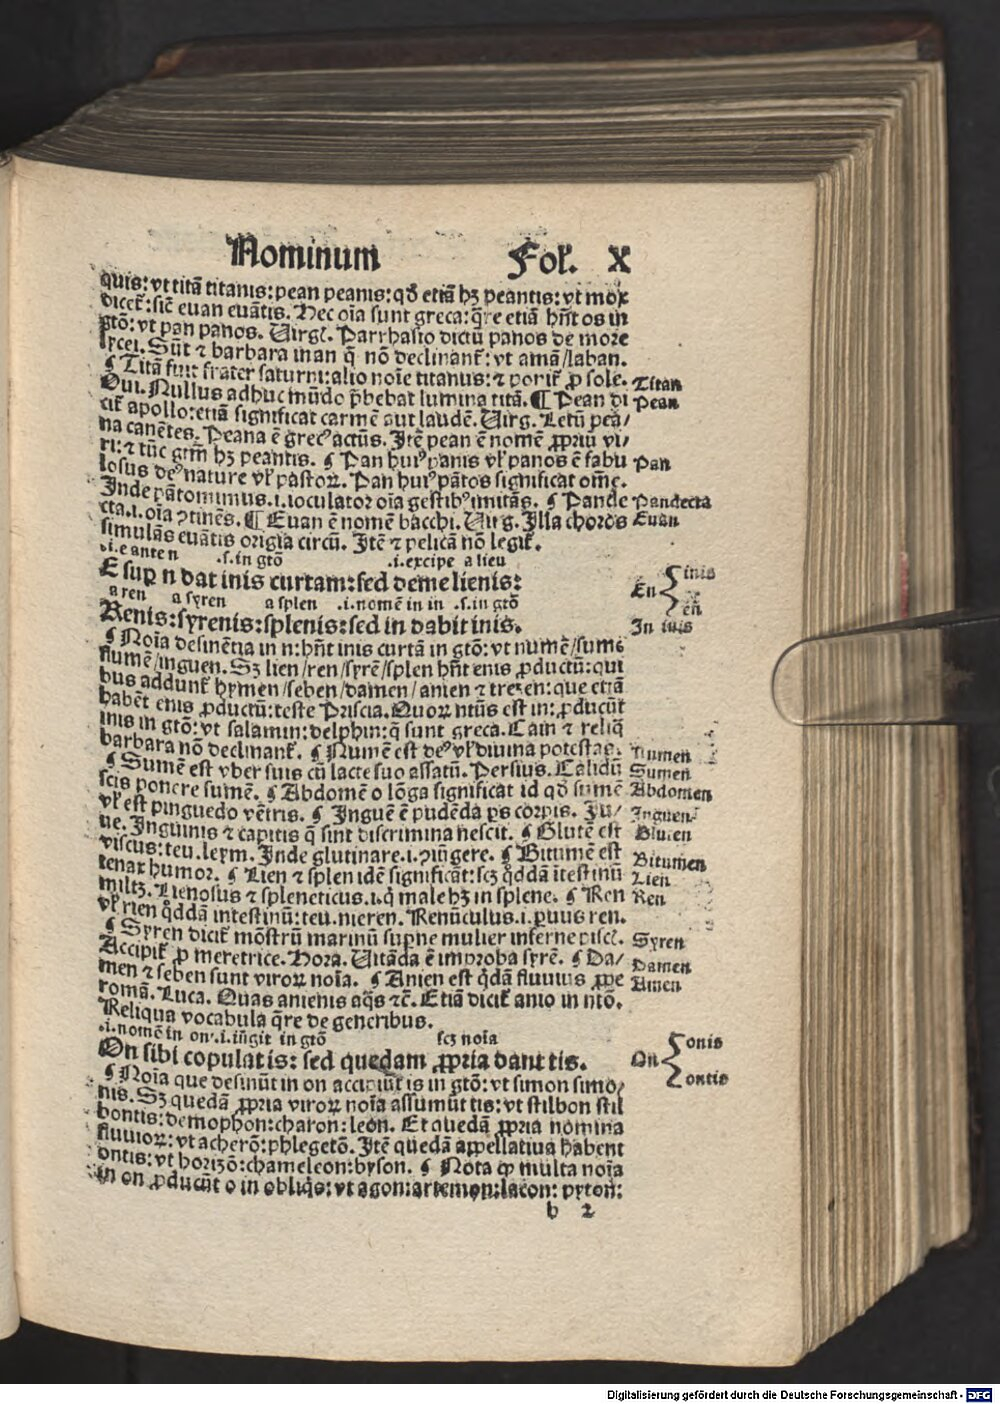 Nominum Fol. X
quis: vt titā titanis: pean peanis: qđ etiā hȝ peantis: vt mox
dicet᷒: sic euan euātis. Hec oīa sunt greca: q̄re etiā hn̄t os in
gtō: vt pan panos. Uirgꝉ. Parrhasio dictū panos de more
lycei. Sūt ⁊ barbara in an q̄ nō declinant᷒: vt amā/laban.
¶ Titā fuit frater saturni: alio noīe titanus: ⁊ ponit᷒ ꝓ sole. Titan
Oui. Nullus adhuc mūdo p̄bebat lumina titā. ¶ Pean di Pean
cit᷒ apollo: etiā significat carmē aut laudē. Uirg. Letū pea/
na canētes. Peana ē grecꝰ actūs. Itē pean ē nomē ꝓpriū vi/
ri: ⁊ tūc gtm̄ hȝ peantis. ¶ Pan huiꝰ panis vꝉ panos ē fabu Pan
losus deꝰ nature vꝉ pastoꝝ. Pan huiꝰ pātos significat om̄e.
Inde pātomimus .i. ioculator oīa gestibꝰ imitās. ¶ Pande Pandecta
cta .i. oīa ꝯtinēs. ¶ Euan ē nomē bacchi. Uirg. Illa choros Euan
simulās euātis orgia circū. Itē ⁊ pelicā nō legit᷒.
.i. e anten .s. in gtō .i. excipe a lieu
E suꝑ n dat inis curtam: sed deme lienis: En inis en
a ren a syren a splen .i. nomē in in .s. in gtō
Renis: syrenis: splenis: sed in dabit inis. In inis
¶ Noīa desinētia in n: hn̄t inis curtā in gtō: vt numē/sumē
flumē/inguen. Sȝ lien/ren/syrē/splen hn̄t enis ꝓductū: qui
bus addunt᷒ hymen/seben/damen/anien ⁊ trezen: que etiā
habēt enis ꝓductū: teste Priscia. Quoꝝ ntūs est in: ꝓducūt
inis in gtō: vt salamin: delphin: q̄ sunt greca. Cain ⁊ reliq̄
barbara nō declinant᷒. ¶ Numē est deꝰ vꝉ diuina potestas. Numen
¶ Sumē est vber suis cū lacte suo assatū. Persius. Calidū Sumen
scis ponere sumē. ¶ Abdomē o lōga significat id qđ sumē Abdomen
vꝉ est pinguedo vētris. ¶ Inguē ē pudēda ps corpis. Ju/ Inguen
ue. Inguinis ⁊ capitis q̄ sint discrimina nescit. ¶ Glutē est Gluten
viscus: teu. leym. Inde glutinare .i. ꝯiūgere. ¶ Bitumē est Bitumen
tenax humor. ¶ Lien ⁊ splen idē significāt: scȝ q̊ddā ītestinū Lien
miltȝ. Lienosus ⁊ spleneticus .i. q̇ male hȝ in splene. ¶ Ren Ren
vꝉ rien q̊ddā intestinū: teu. nieren. Renūculus .i. ꝑuus ren.
¶ Syren dicit᷒ mōstrū marinū suꝑne mulier inferne piscꝭ. Syren
Accipit᷒ ꝓ meretrice. Hora. Uitāda ē improba syrē. ¶ Da/ Damen
men ⁊ seben sunt viroꝝ noīa. ¶ Anien est q̇dā fluuius ꝓpe Amen
romā. Luca. Quas anienis aq̄s ⁊c̄. Etiā dicit᷒ anio in ntō.
Reliqua vocabula q̄re de generibus.
.i. nomē in on .i. iūgit in gtō scȝ noīa
On sibi copulat is: sed quedam ꝓpria dant tis. On onis ontis
¶ Noīa que desinūt in on accipiūt is in gtō: vt simon simo/
nis. Sȝ quedā ꝓpria viroꝝ noīa assumūt tis: vt stilbon stil
bontis: demophon: charon: leon. Et quedā ꝓpria nomina
fluuioꝝ: vt acherō: phlegetō. Itē quedā appellatiua habent
ontis: vt horizō: chameleon: byson. ¶ Nota ꝙ multa noīa
in on ꝓducūt o in obliq̇s: vt agon: artemon: lacon: pyton:
b 2
Digitalisierung gefördert durch die Deutsche Forschungsgemeinschaft - DFG